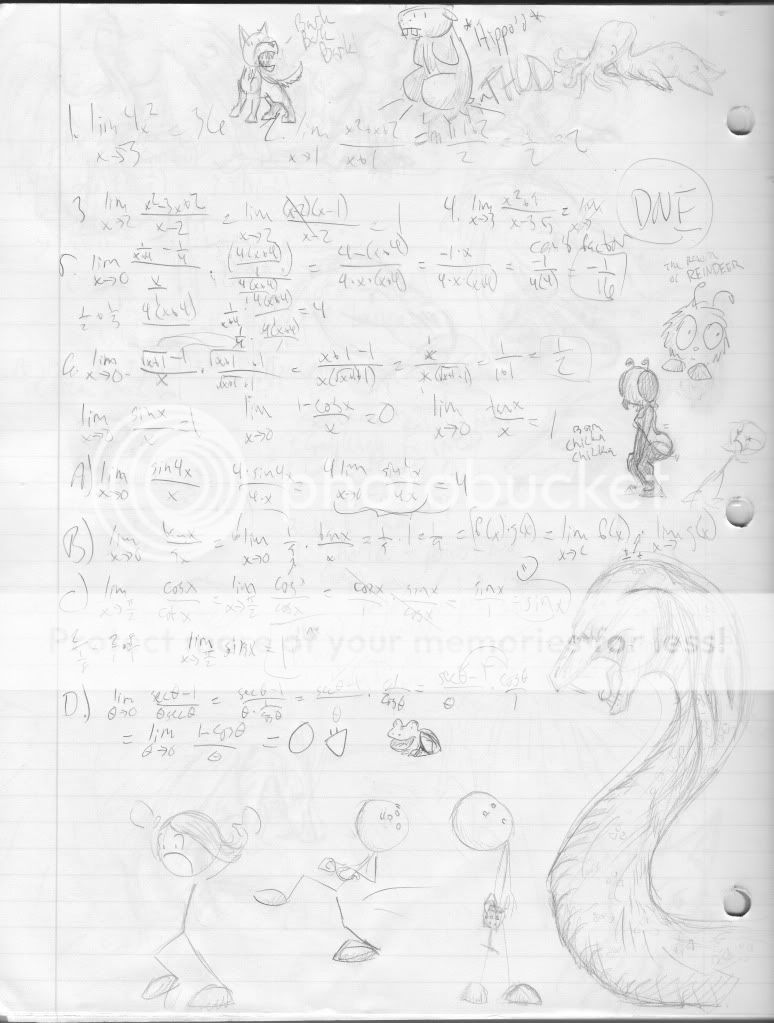 Bark
Bark
Bark!
*Hippo'd*
THUD
1. lim x→3 4x² = 36 2. lim x→1 (x²+x+2)/(x+1) = (1+1+2)/2 = 4/2 = 2
3 lim x→2 (x²-3x+2)/(x-2) = lim x→2 (x-2)(x-1)/(x-2) = 1 4. lim x→3 = lim x→3 DNE
can't factor
5. lim x→0 (1/(x+4) - 1/4)/x · (4(x+4))/(4(x+4)) = (4-(x+4))/(4·x·(x+4)) = (-1·x)/(4·x(x+4)) = -1/(4(4)) = -1/16
THE REIGN
OF REINDEER
1/2 + 1/3 4(x+4) 1/(x+4) · 4(x+4) = 4
6. lim x→0 (√(x+1) - 1)/x · (√(x+1) + 1)/(√(x+1) + 1) = (x+1-1)/(x(√(x+1)+1)) = x/(x(√(x+1)+1)) = 1/(1+1) = 1/2
lim x→0 sinx/x = 1 lim x→0 (1-cosx)/x = 0 lim x→0 tanx/x = 1
Bom
chicka
chicka
A) lim x→0 sin4x/x 4·sin4x/4·x 4 lim x→0 sin4x/4x 4
B) lim x→0 tanx/9x = lim x→0 1/9 · tanx/x = 1/9 · 1 = 1/9 = (f(x)·g(x) = lim x→c f(x) · lim x→ g(x)
C) lim x→π/2 cosx/cotx = lim x→π/2 cosx/(cosx/sinx) = cosx/1 · sinx/cosx = sinx/1 = sinx
lim x→π/2 sinx = 1
D.) lim θ→0 (secθ-1)/(θsecθ) = (secθ-1)/(θ·1/cosθ) = (secθ-1)/θ · cosθ/1
= lim θ→0 (1-cosθ)/θ = 0
photobucket
Protect more of your memories for less!